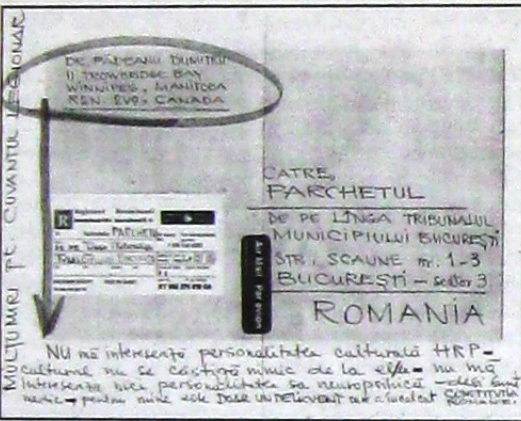 MULȚUMIRI PE CUVANTUL LEGIONAR
DR. PĂDEANU DUMITRU
11 TROWBRIDGE BAY
WINNIPEG, MANITOBA
R2N. 2V9, CANADA
CATRE,
PARCHETUL
DE PE LÎNGA TRIBUNALUL
MUNICIPIULUI BUCUREȘTI
STR. SCAUNE nr. 1-3
BUCUREȘTI - sector 3
ROMANIA
R Registered Recommandé
PARCHETUL
Air Mail Par avion
NU mă interesează personalitatea culturală HRP -
cultural nu se câștigă nimic de la el/ea - nu mă
interesează nici personalitatea sa neuropsihică - deși sunt
medic - pentru mine este DOAR UN DELICVENT care a încălcat CONSTITUTIA
ROMANIEI.